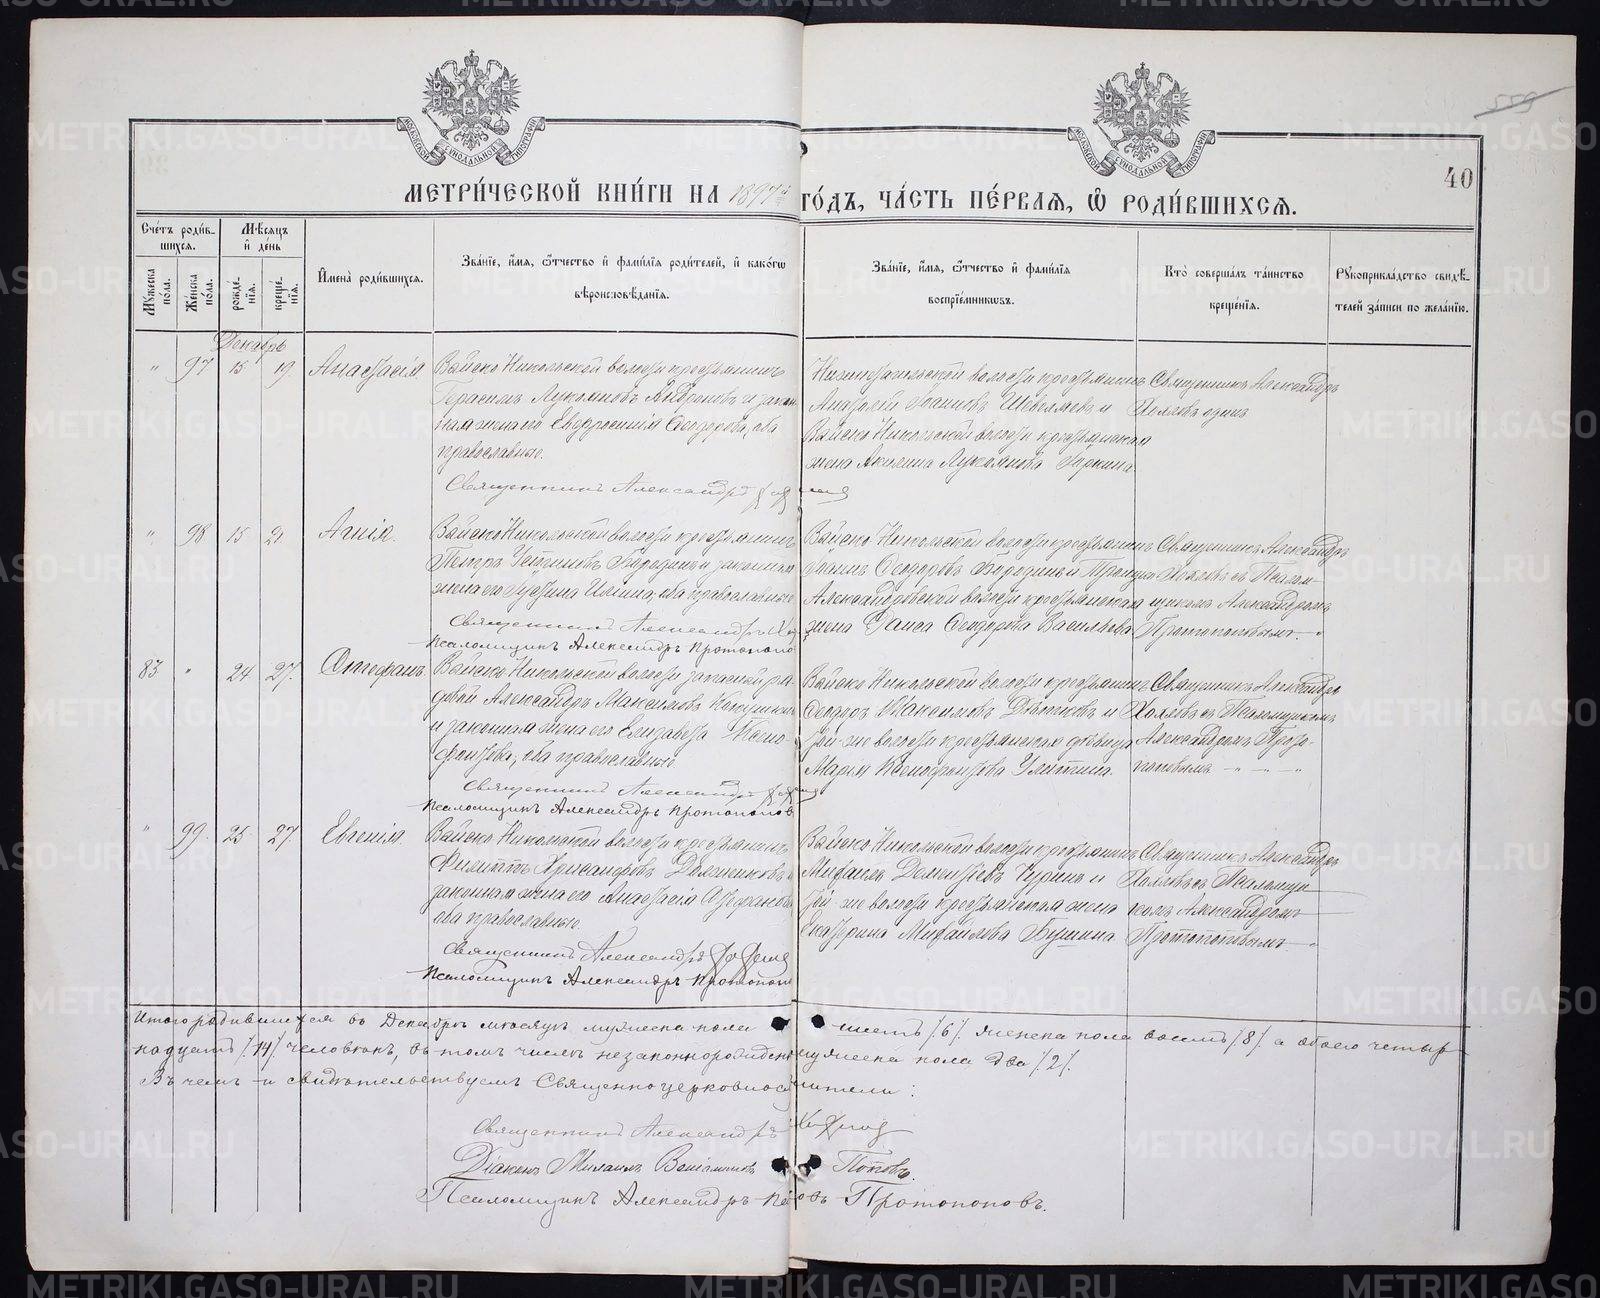 559
40
МОСКОВСКОЙ СѴНОДАЛЬНОЙ ТИПОГРАФІИ
МОСКОВСКОЙ СѴНОДАЛЬНОЙ ТИПОГРАФІИ
МЕТРИ́ЧЕСКОЙ КНИ́ГИ НА 1897й ГО́ДЪ, ЧА́СТЬ ПЕ́РВАЯ, Ѽ РОДИ́ВШИХСЯ.
Сче́тъ роди́в-
шихся.
Мѣ́сяцъ
и҆ де́нь
Му́жеска
по́ла.
Же́нска
по́ла.
рожде́-
нїя.
креще́-
нїя.
И҆мена̀ роди́вшихся.
Зва́нїе, и҆́мя, ѻ҆́тчество и҆ фами́лїя роди́телей, и҆ како́гѡ
вѣроисповѣ́данїя.
Зва́нїе, и҆́мя, ѻ҆́тчество и҆ фами́лїя
воспрїе́мникѡвъ.
Кто̀ соверша́лъ та́инство
креще́нїя.
Рꙋкоприкла́дство свидѣ́-
телей за́писи по жела́нїю.
Декабрь
" 97 15 19. Анастасія.
Войско Никольской волости крестьянинъ
Герасимъ Лукояновъ и закон
ная жена его Евфросинія Ѳеодорова, оба
православные.
Священникъ Александръ Хохловъ
Нижнетагильской волости крестьянинъ
Анатолій Іоанновъ Шевелевъ и
Войско Никольской волости крестьянская
жена Акилина Лукоянова
Священникъ Александръ
Хохловъ одинъ
" 98 15 21 Агнія.
Войско Никольской волости крестьянинъ
Петръ Бородинъ и законная
жена его Іустина Ильина, оба православные
Священникъ Александръ Хох
Псаломщикъ Александръ Протопопо
Войско Никольской волости крестьянинъ
Іоаннъ Ѳеодоровъ Бородинъ и Троицко
Александровской волости крестьянская
жена Раиса Ѳеодорова Васильева
Священникъ Александръ
Хохловъ съ Псалом-
щикомъ Александромъ
Протопоповымъ. "
83 " 24 27. Стефанъ.
Войско Никольской волости запасный ря-
довой Александръ Максимовъ
и законная жена его Елизавета Ксено-
фонтова, оба православные
Священникъ Александръ Хохловъ
Псаломщикъ Александръ Протопопов
Войско Никольской волости крестьянинъ
Ѳеодоръ Максимовъ и
той-же волости крестьянская дѣвица
Марія Ксенофонтова Улитина.
Священникъ Александръ
Хохловъ съ Псаломщикомъ
Александромъ Прото-
поповымъ — " — " — "
" 99. 25 27. Евгенія.
Войско Никольской волости крестьянинъ
Филиппъ Хрисанфовъ и
законная жена его Анастасія Стефанова
оба православные.
Священникъ Александръ Хохловъ
Псаломщикъ Александръ Протопопо
Войско Никольской волости крестьянинъ
Михаилъ Дементьевъ и
той-же волости крестьянская жена
Екатерина Михаилова Бушина.
Священникъ Александръ
Хохловъ съ Псаломщи
комъ Александромъ
Протопоповымъ — "
Итого родившихся въ Декабрѣ мѣсяцѣ мужеска пола шесть /6/. женска пола восемь /8/. а обоего четыр-
надцать /14/ человѣкъ, въ томъ числѣ незаконнорожденн мужеска пола два /2/.
Въ чемъ и свидѣтельствуемъ Священноцерковнослужители:
Священникъ Александръ Хохловъ
Діаконъ Михаилъ Веніаминовъ Поповъ.
Псаломщикъ Александръ Протопоповъ.
METRIKI.GASO-URAL.RU